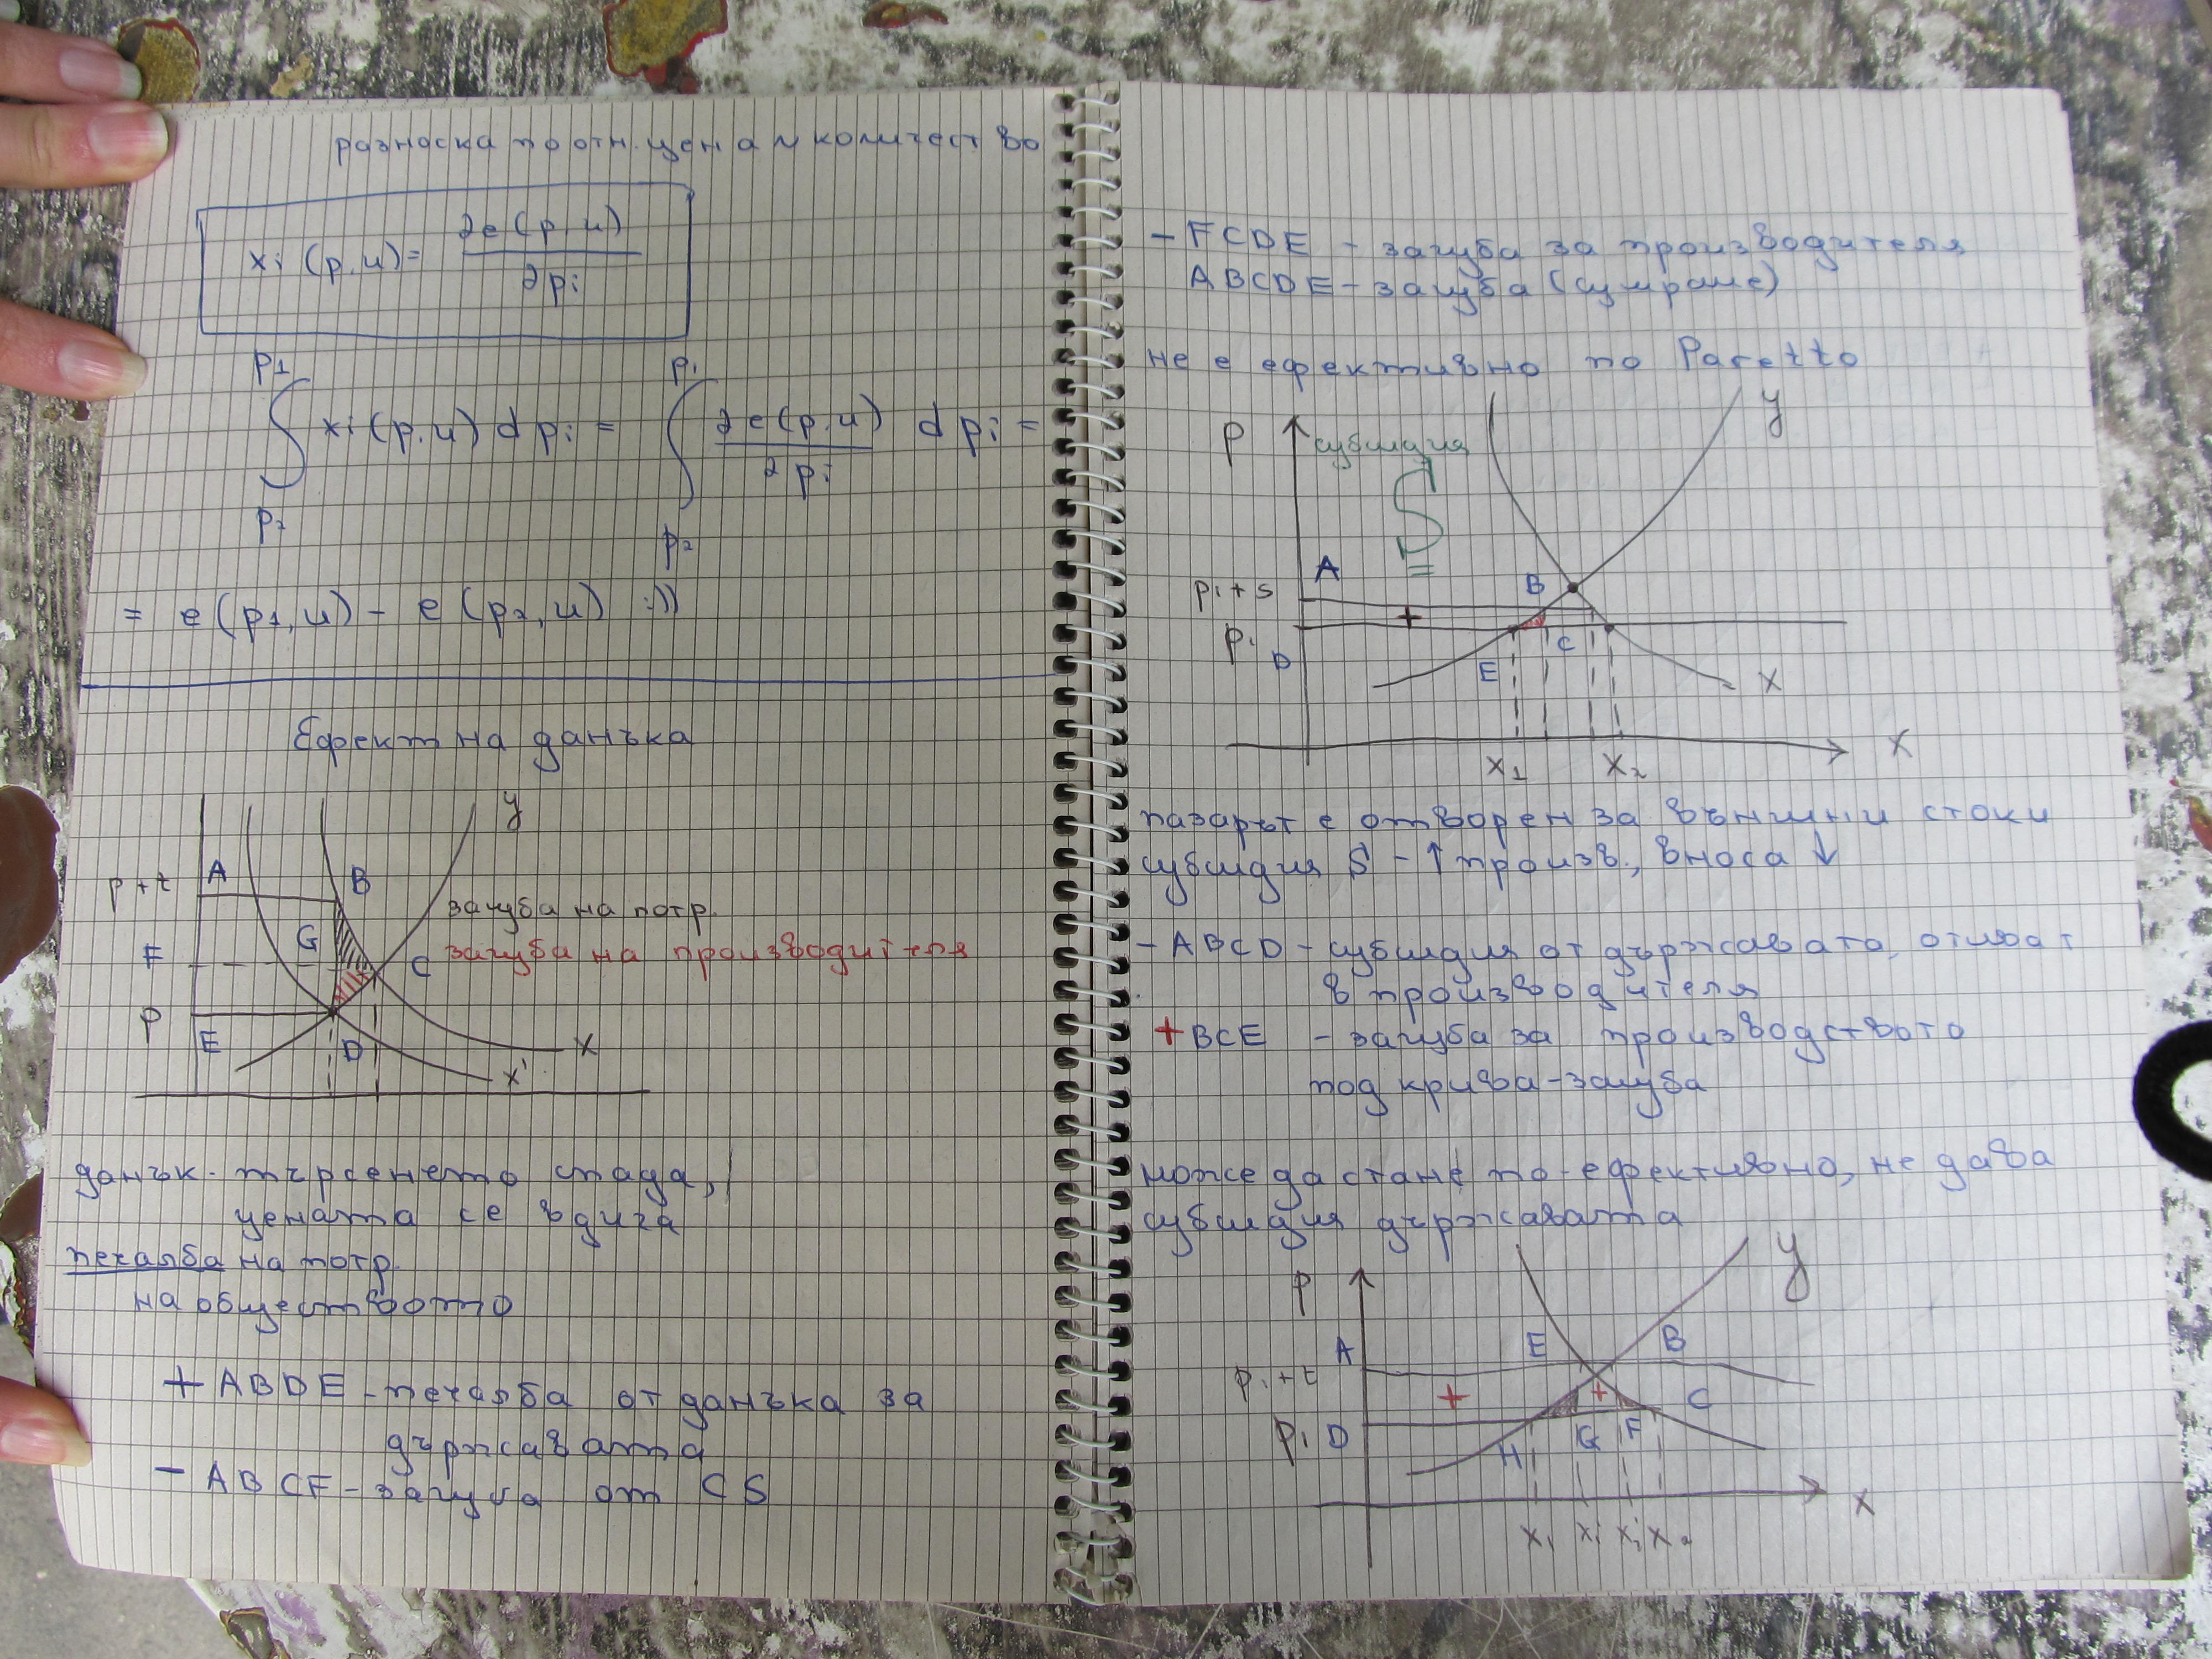 разноска по отн. цена и количество
xi (p.u) = ∂e(p.u) / ∂pi
p1 p1
∫ xi(p.u) dpi = ∫ ∂e(p.u) / ∂pi dpi =
p2 p2
= e(p1,u) - e(p2,u) :))
Ефект на данъка
y
p+t A B
загуба на потр.
F G C загуба на производителя
p E D x
x'
данък - търсенето спада,
цената се вдига
печалба на потр.
на обществото
+ ABDE - печалба от данъка за
държавата
- ABCF - загуба от CS
- FCDE - загуба за производителя
ABCDE - загуба (сумраме)
не е ефективно по Paretto
p субсидия y
A
pi+s B
+
pi D E C x
x1 x2 x
пазарът е отворен за външни стоки
субсидия S - ↑ произв., вноса ↓
- ABCD - субсидия от държавата, отиват
в производителя
+ BCE - загуба за производството
под крива - загуба
може да стане по-ефективно, не дава
субсидия държавата
p y
A E B
pi+t + +
pi D H G F C
x1 x1' x2' x2 x